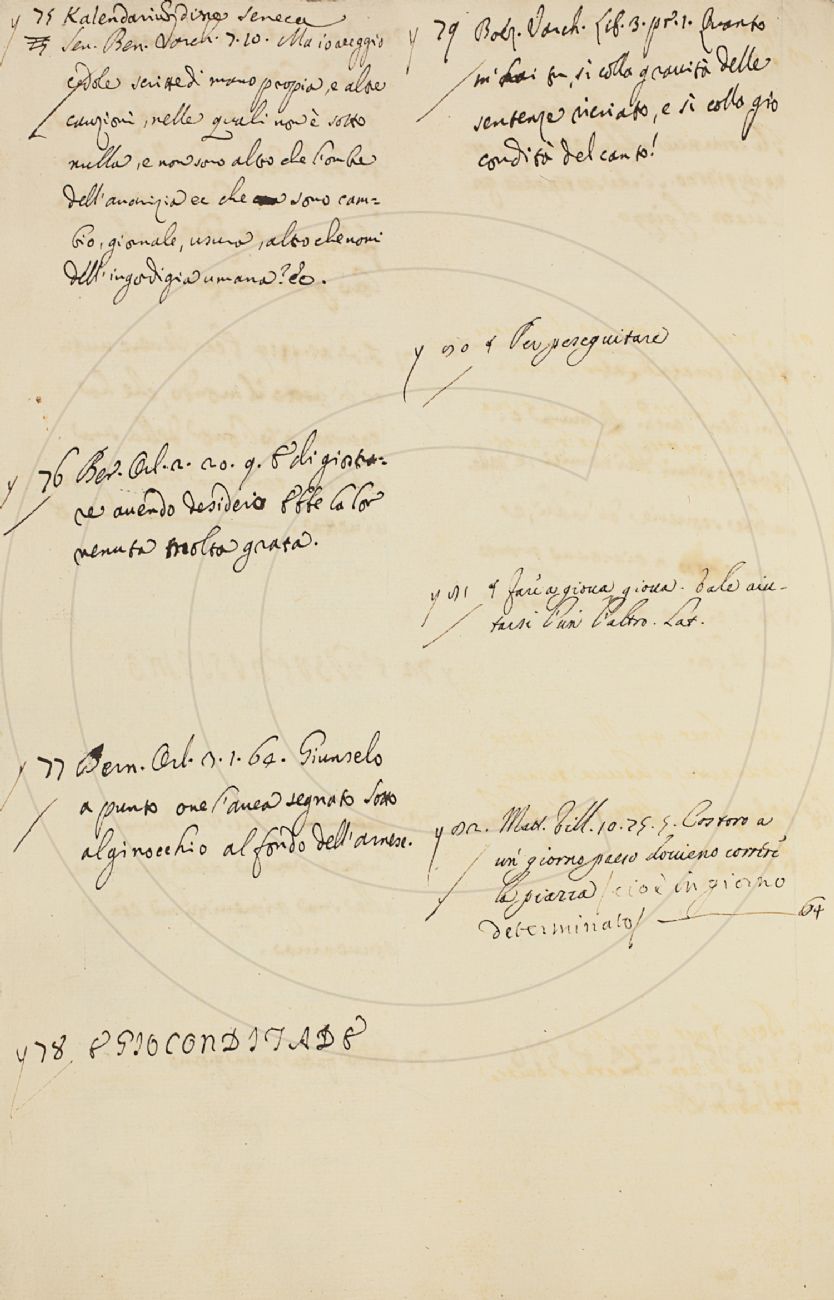 y 75 Kalendarium dine Seneca
Sen. Ben. Varch. 7. 10. Ma io veggio
cedole scritte di mano propia, e altre
cauzioni, nelle quali non è sotto
nulla, e non sono altro che l'ombre
dell'avarizia ec che sono cam=
bio, giornale, usura, altro che nomi
dell'ingordigia umana? ec.
y 76 Ber. Orl. 2. 20. 9. E di giostra=
re avendo desiderio Ebbe la lor
venuta molto grata.
y 77 Bern. Orl. 3. 1. 64. Giunselo
a punto ove l'avea segnato Sotto
al ginocchio al fondo dell'arnese.
y 78 E GIOCONDITADE
y 79 Boez. Varch. Lib. 3. pr. 1. Quanto
m'hai tu, sì colla gravità delle
sentenze ricriato, e sì colla gio
condità del canto!
y 80 § Per perseguitare
y 81 § fare a giova giova. vale aiu-
tarsi l'un l'altro. Lat.
y 82. Matt. Vill. 10. 75. §. Costoro a
un' giorno preso dovieno correre
la piazza / cioè in giorno
determinato / 64